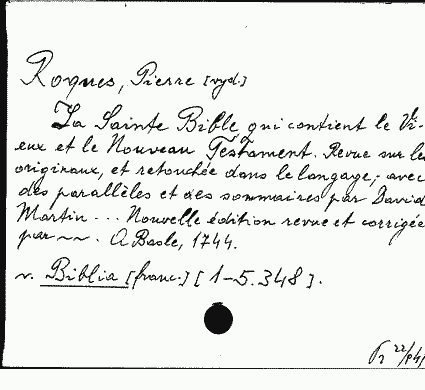 Roques, Pierre [vyd.]
La Sainte Bible, qui contient le Vi-
eux et le Nouveau Testament. Revue sur les
originaux, et retouchée dans le langage; avec
des parallèles et des sommaires par David
Martin ... Nouvelle édition revue et corrigée
par ~~. A Basle, 1744.
v. Biblia [franc.] [1-5.348].